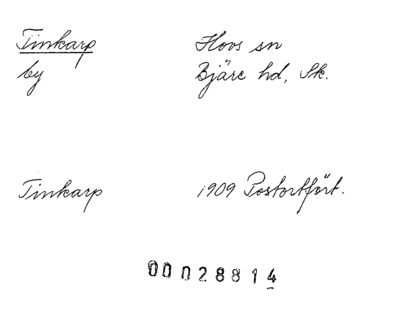 Tinkarp Hovs sn
by Bjäre hd, Sk.
Tinkarp 1909 Postortfört.
00028814